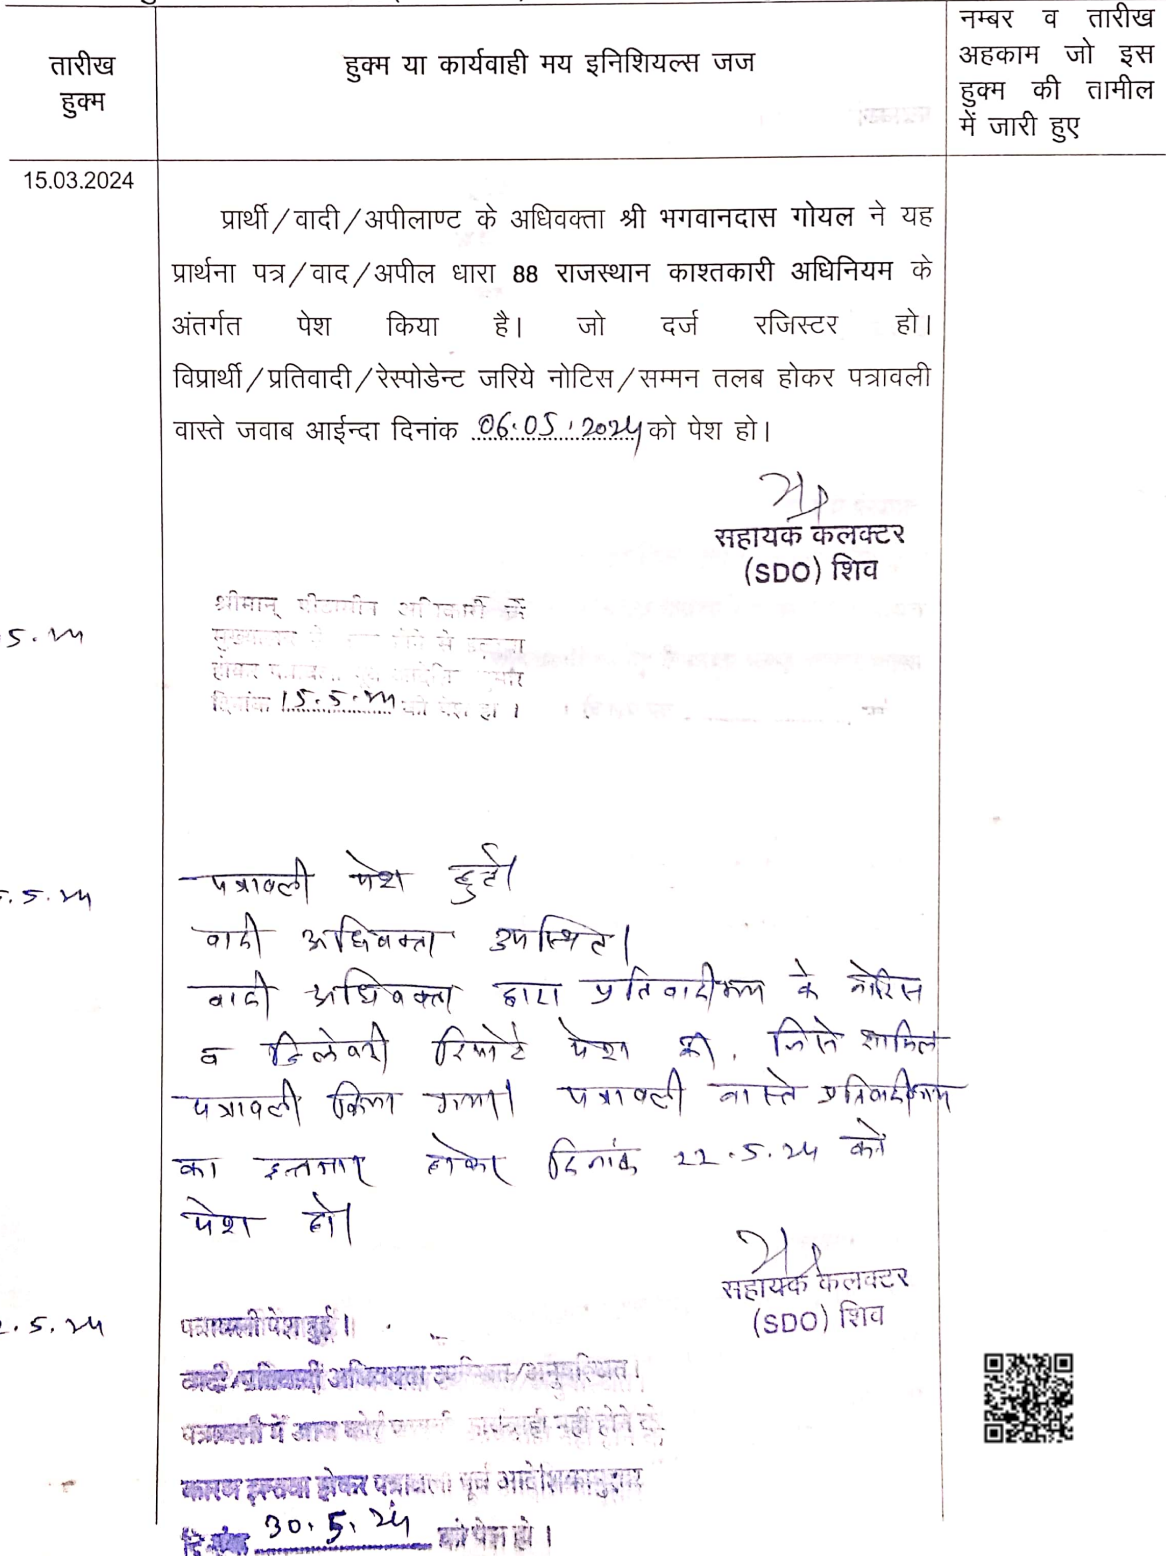 तारीख
हुक्म
हुक्म या कार्यवाही मय इनिशियल्स जज
नम्बर व तारीख
अहकाम जो इस
हुक्म की तामील
में जारी हुए
15.03.2024
प्रार्थी/वादी/अपीलाण्ट के अधिवक्ता श्री भगवानदास गोयल ने यह
प्रार्थना पत्र/वाद/अपील धारा 88 राजस्थान काश्तकारी अधिनियम के
अंतर्गत पेश किया है। जो दर्ज रजिस्टर हो।
विप्रार्थी/प्रतिवादी/रेस्पोडेन्ट जरिये नोटिस/सम्मन तलब होकर पत्रावली
वास्ते जवाब आईन्दा दिनांक 06.05.2024 को पेश हो।
सहायक कलक्टर
(SDO) शिव
5.24
श्रीमान् पीठासीन अधिकारी के
से
होकर
दिनांक 15.5.24 को पेश हो।
.5.24
पत्रावली पेश हुई।
वादी अधिवक्ता उपस्थित।
वादी अधिवक्ता द्वारा प्रतिवादीगण के नोटिस
व डिलेवरी रिपोर्ट पेश की, जिसे शामिल
पत्रावली किया गया। पत्रावली वास्ते प्रतिवादीगण
का इन्तजार होकर दिनांक 22.5.24 को
पेश हो।
सहायक कलक्टर
(SDO) शिव
.5.24
पत्रावली पेश हुई।
वादी/प्रतिवादी अधिवक्ता उपस्थित/अनुपस्थित।
पत्रावली में आज कोई कार्यवाही नहीं होने के
कारण होकर पत्रावली पूर्व आदेशिकानुसार
दिनांक 30.5.24 को पेश हो।